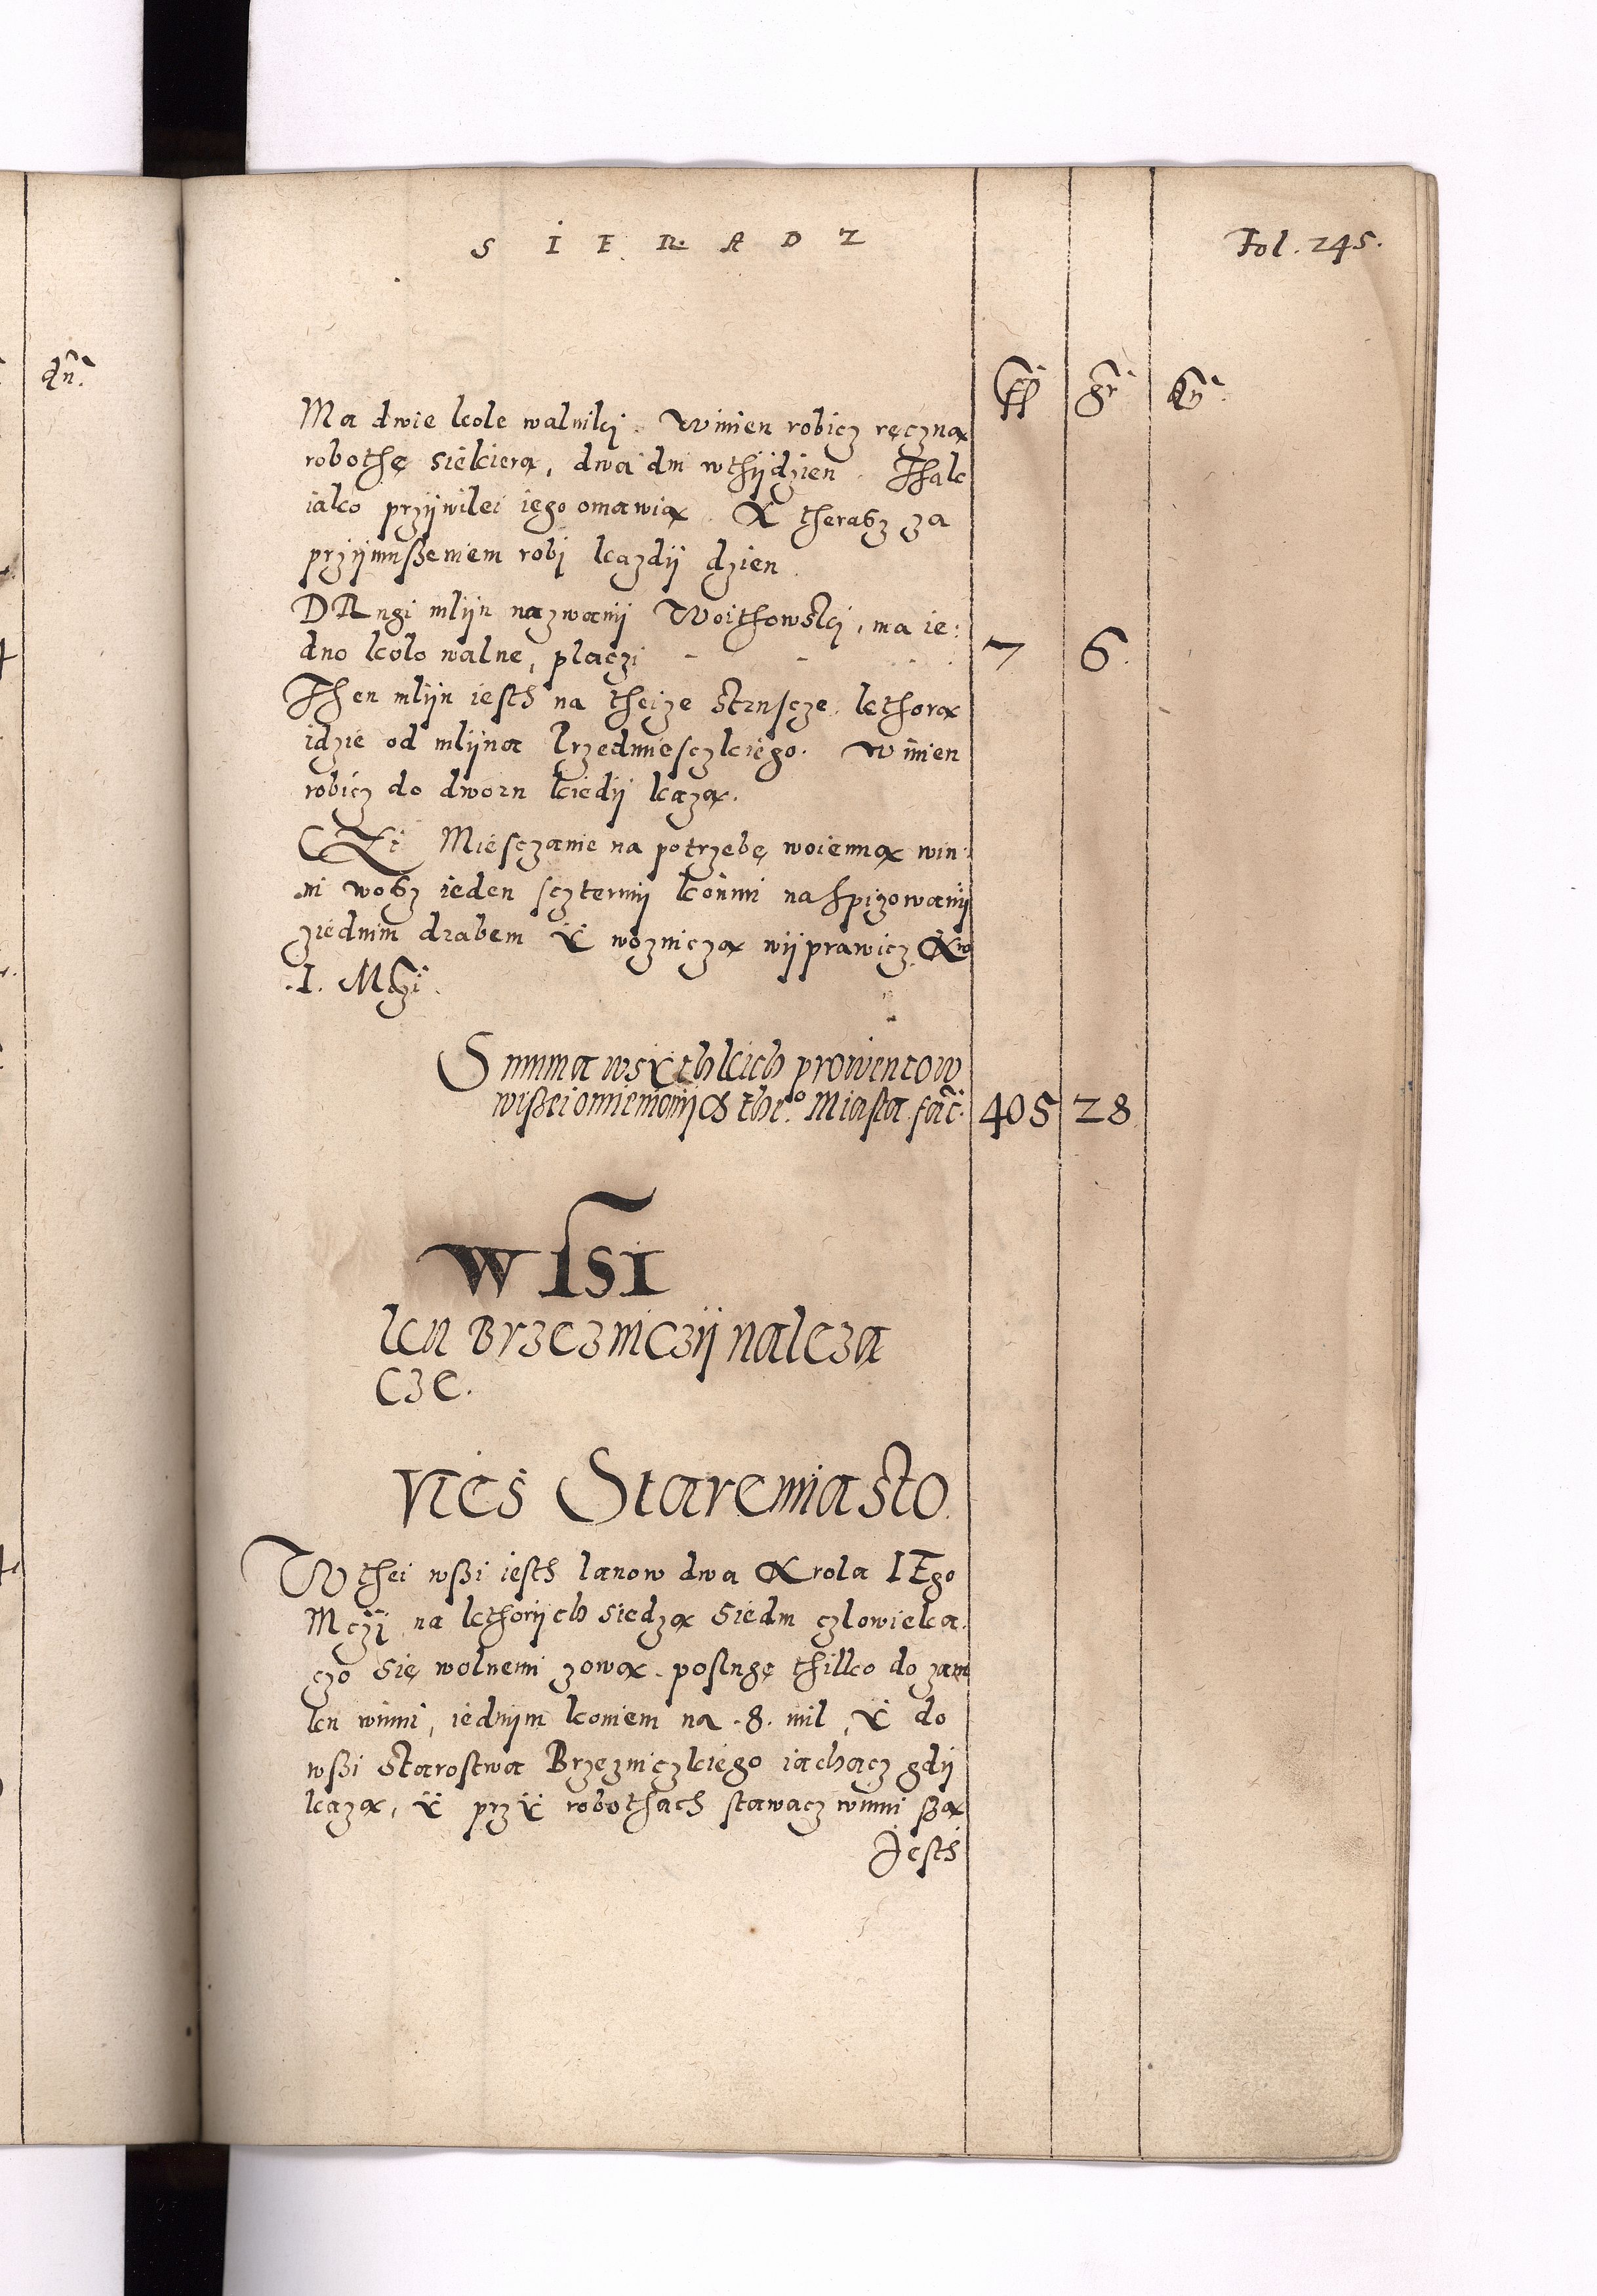 SIERADZ
Fol. 245.
dn̄.
fl gr dn̄
Ma dwie kole walniki. Winien robicz ręczną
robothę siekierą, dwa dni wthijdzien. Thak
iako przijwilei iego omawią. A therasz za
przijmuszeniem robi kazdij dzien.
DRugi mlijn nazwanij Woithowski, ma ie:
dno kolo walne, placzi - - 7 6.
Then mlijn iesth na theize Struscze kthorą
idzie od mlijna Przedmiesczkiego. Winien
robicz do dworu kiedij każą.
CZi Miesczanie na potrzebę woienną win:
ni wosz ieden sczternij końmi na spizowanij
ziednim drabem ÿ wozniczą wijprawicz Kro
I. Mczi.
Summa wsÿthkich prowentow
wiszei omienionijch the.o Miasta facit. 405 28
WſSI
ku Brzezniczij należa
cze.
Vies Staremiasto
W thei wszi iesth lanow dwa Krola IEgo
Mczij na kthorijch siedzą siedm czlowieka.
czo się wolnemi zową. poslugę thilko do zam
ku winni, iednijm koniem na .8. mil, ÿ do
wszi Starostwa Brzezniczkiego iachacz gdij
każą, ÿ przÿ robothach stawacz winni szą
Jesth